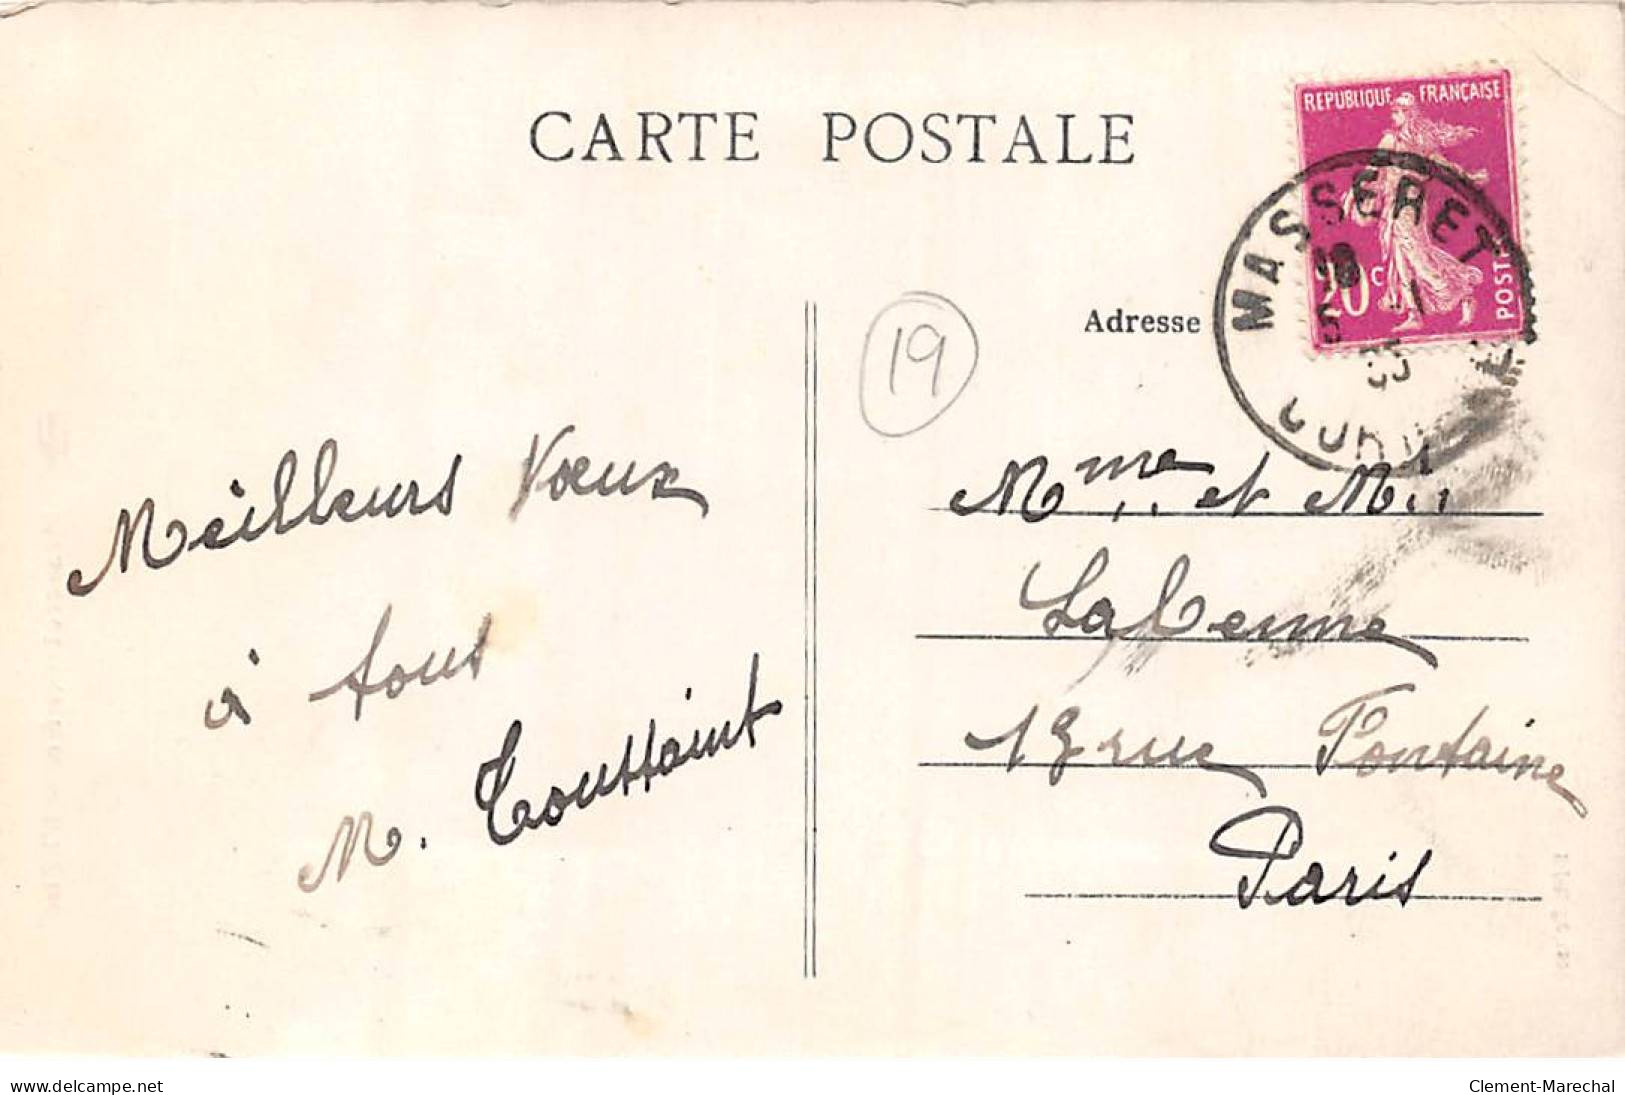 CARTE POSTALE
REPUBLIQUE FRANÇAISE
20c
POSTES
MASSERET
19
Adresse
Meilleurs Vœux
à tous
M. Toussaint
Mme et Mr
Rue Fontaine
Paris
www.delcampe.net
Clement-Marechal